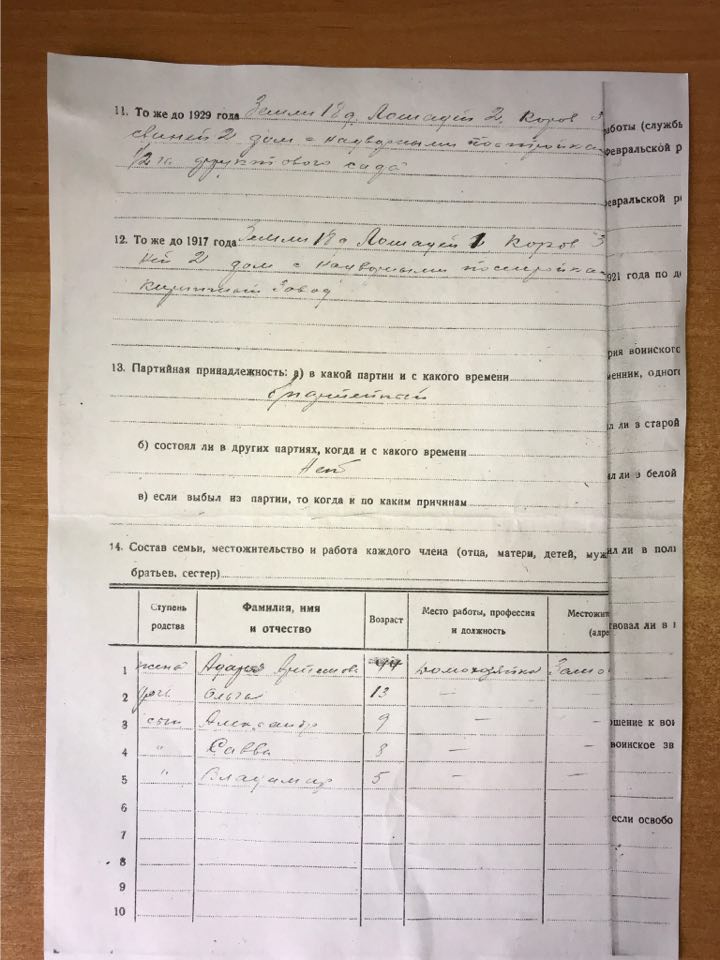 11. То же до 1929 года Земли 18 д Лошадей 2, Коров 3
свиней 2 дом с надворными постройка
1/2 га фруктового сада
12. То же до 1917 года Земли 18 д Лошадей 1 Коров 3
ней 2 дом с надворными постройка
Кирпичный Завод
13. Партийная принадлежность: а) в какой партии и с какого времени
б) состоял ли в других партиях, когда и с какого времени
Нет
в) если выбыл из партии, то когда и по каким причинам
14. Состав семьи, местожительство и работа каждого члена (отца, матери, детей, муж
братьев, сестер)
Ступень родства
Фамилия, имя и отчество
Возраст
Место работы, профессия и должность
Местожи
(адре
1 жена домохозяйка
2 дочь Ольга 13 —
3 сын Александр 9 — –
4 " Савва 8 — –
5 " Владимир 5 — –
6
7
8
9
10
аботы (службы
февральской р
февральской ре
1921 года по де
рия воинского
менник, одного
л ли в старой
ил ли в белой
ил ли в пол
твовал ли в
ошение к вои
воинское зв
если освобо